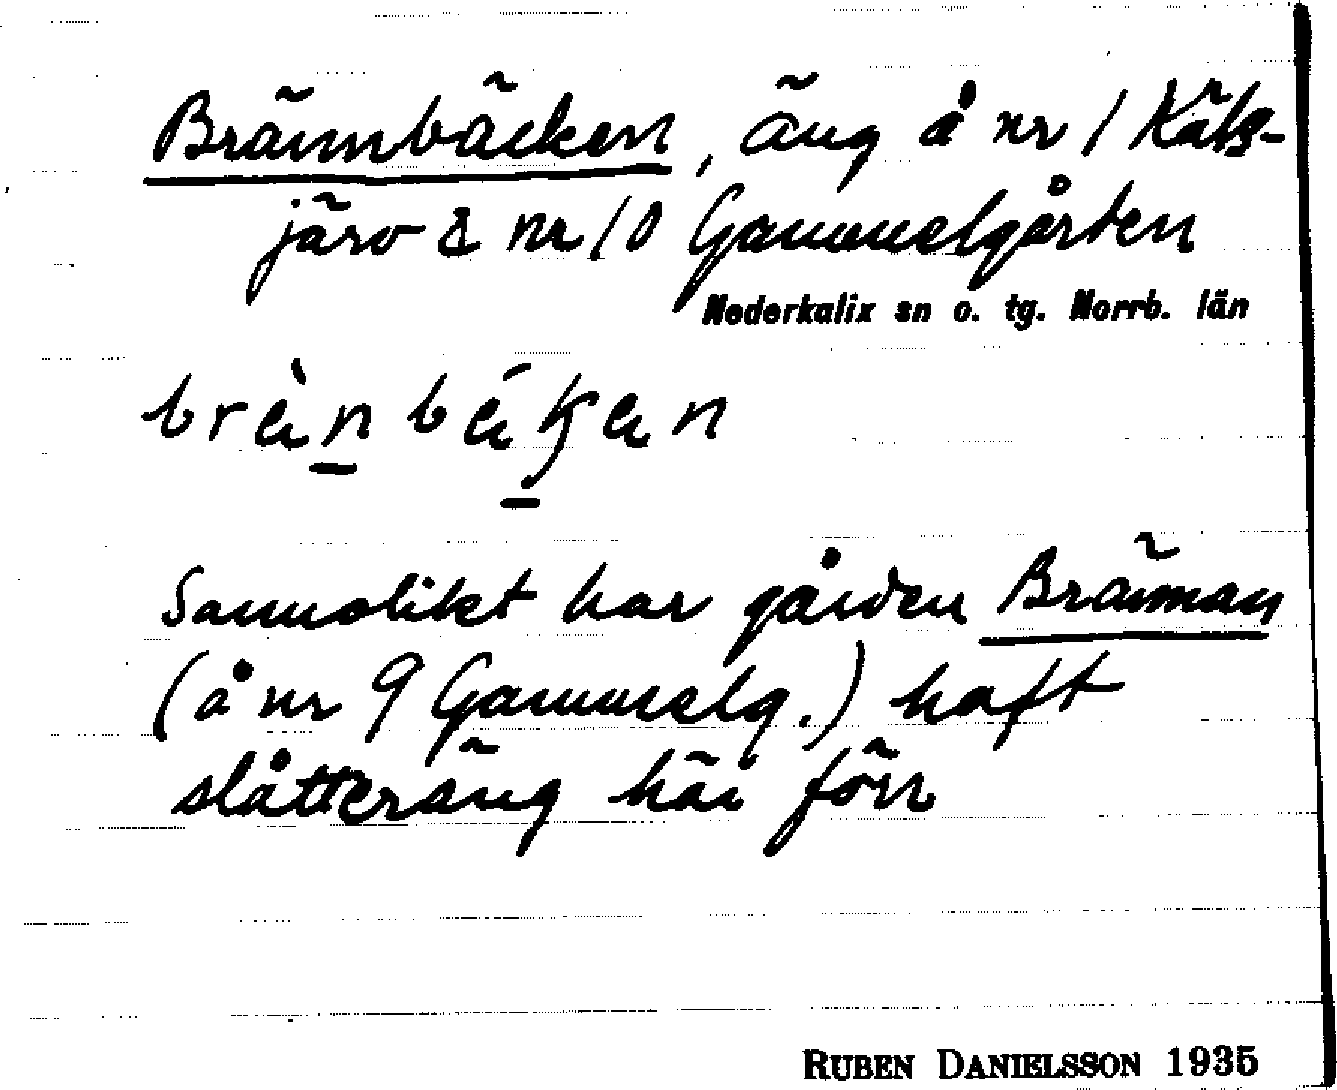 Brännbäcken, äng å nr 1 Räts-
järv & nr 10 Gammelgården
Nederkalix sn o. tg. Norrb. län
brànbákan
Sannolikt har gården Brännan
(å nr 9 Gammelg.) haft
slåtteräng här förr
RUBEN DANIELSSON 1935